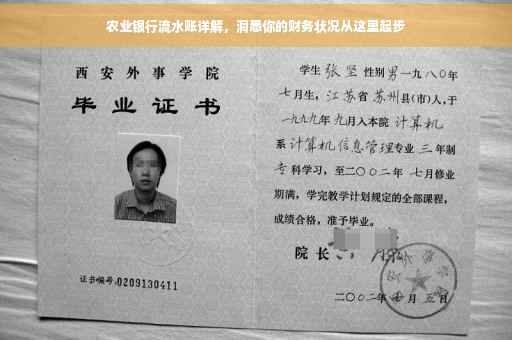 农业银行流水账详解，洞悉你的财务状况从这里起步
西安外事学院
毕业证书
证书编号:0209130411
学生 张坚 性别 男 一九八〇年
七月生，江苏省苏州县(市)人，于
一九九九年九月入本院 计算机
系 计算机信息管理专业 三 年制
专科学习，至二〇〇二年 七月修业
期满，学完教学计划规定的全部课程，
成绩合格，准予毕业。
院长
二〇〇二年 月五日